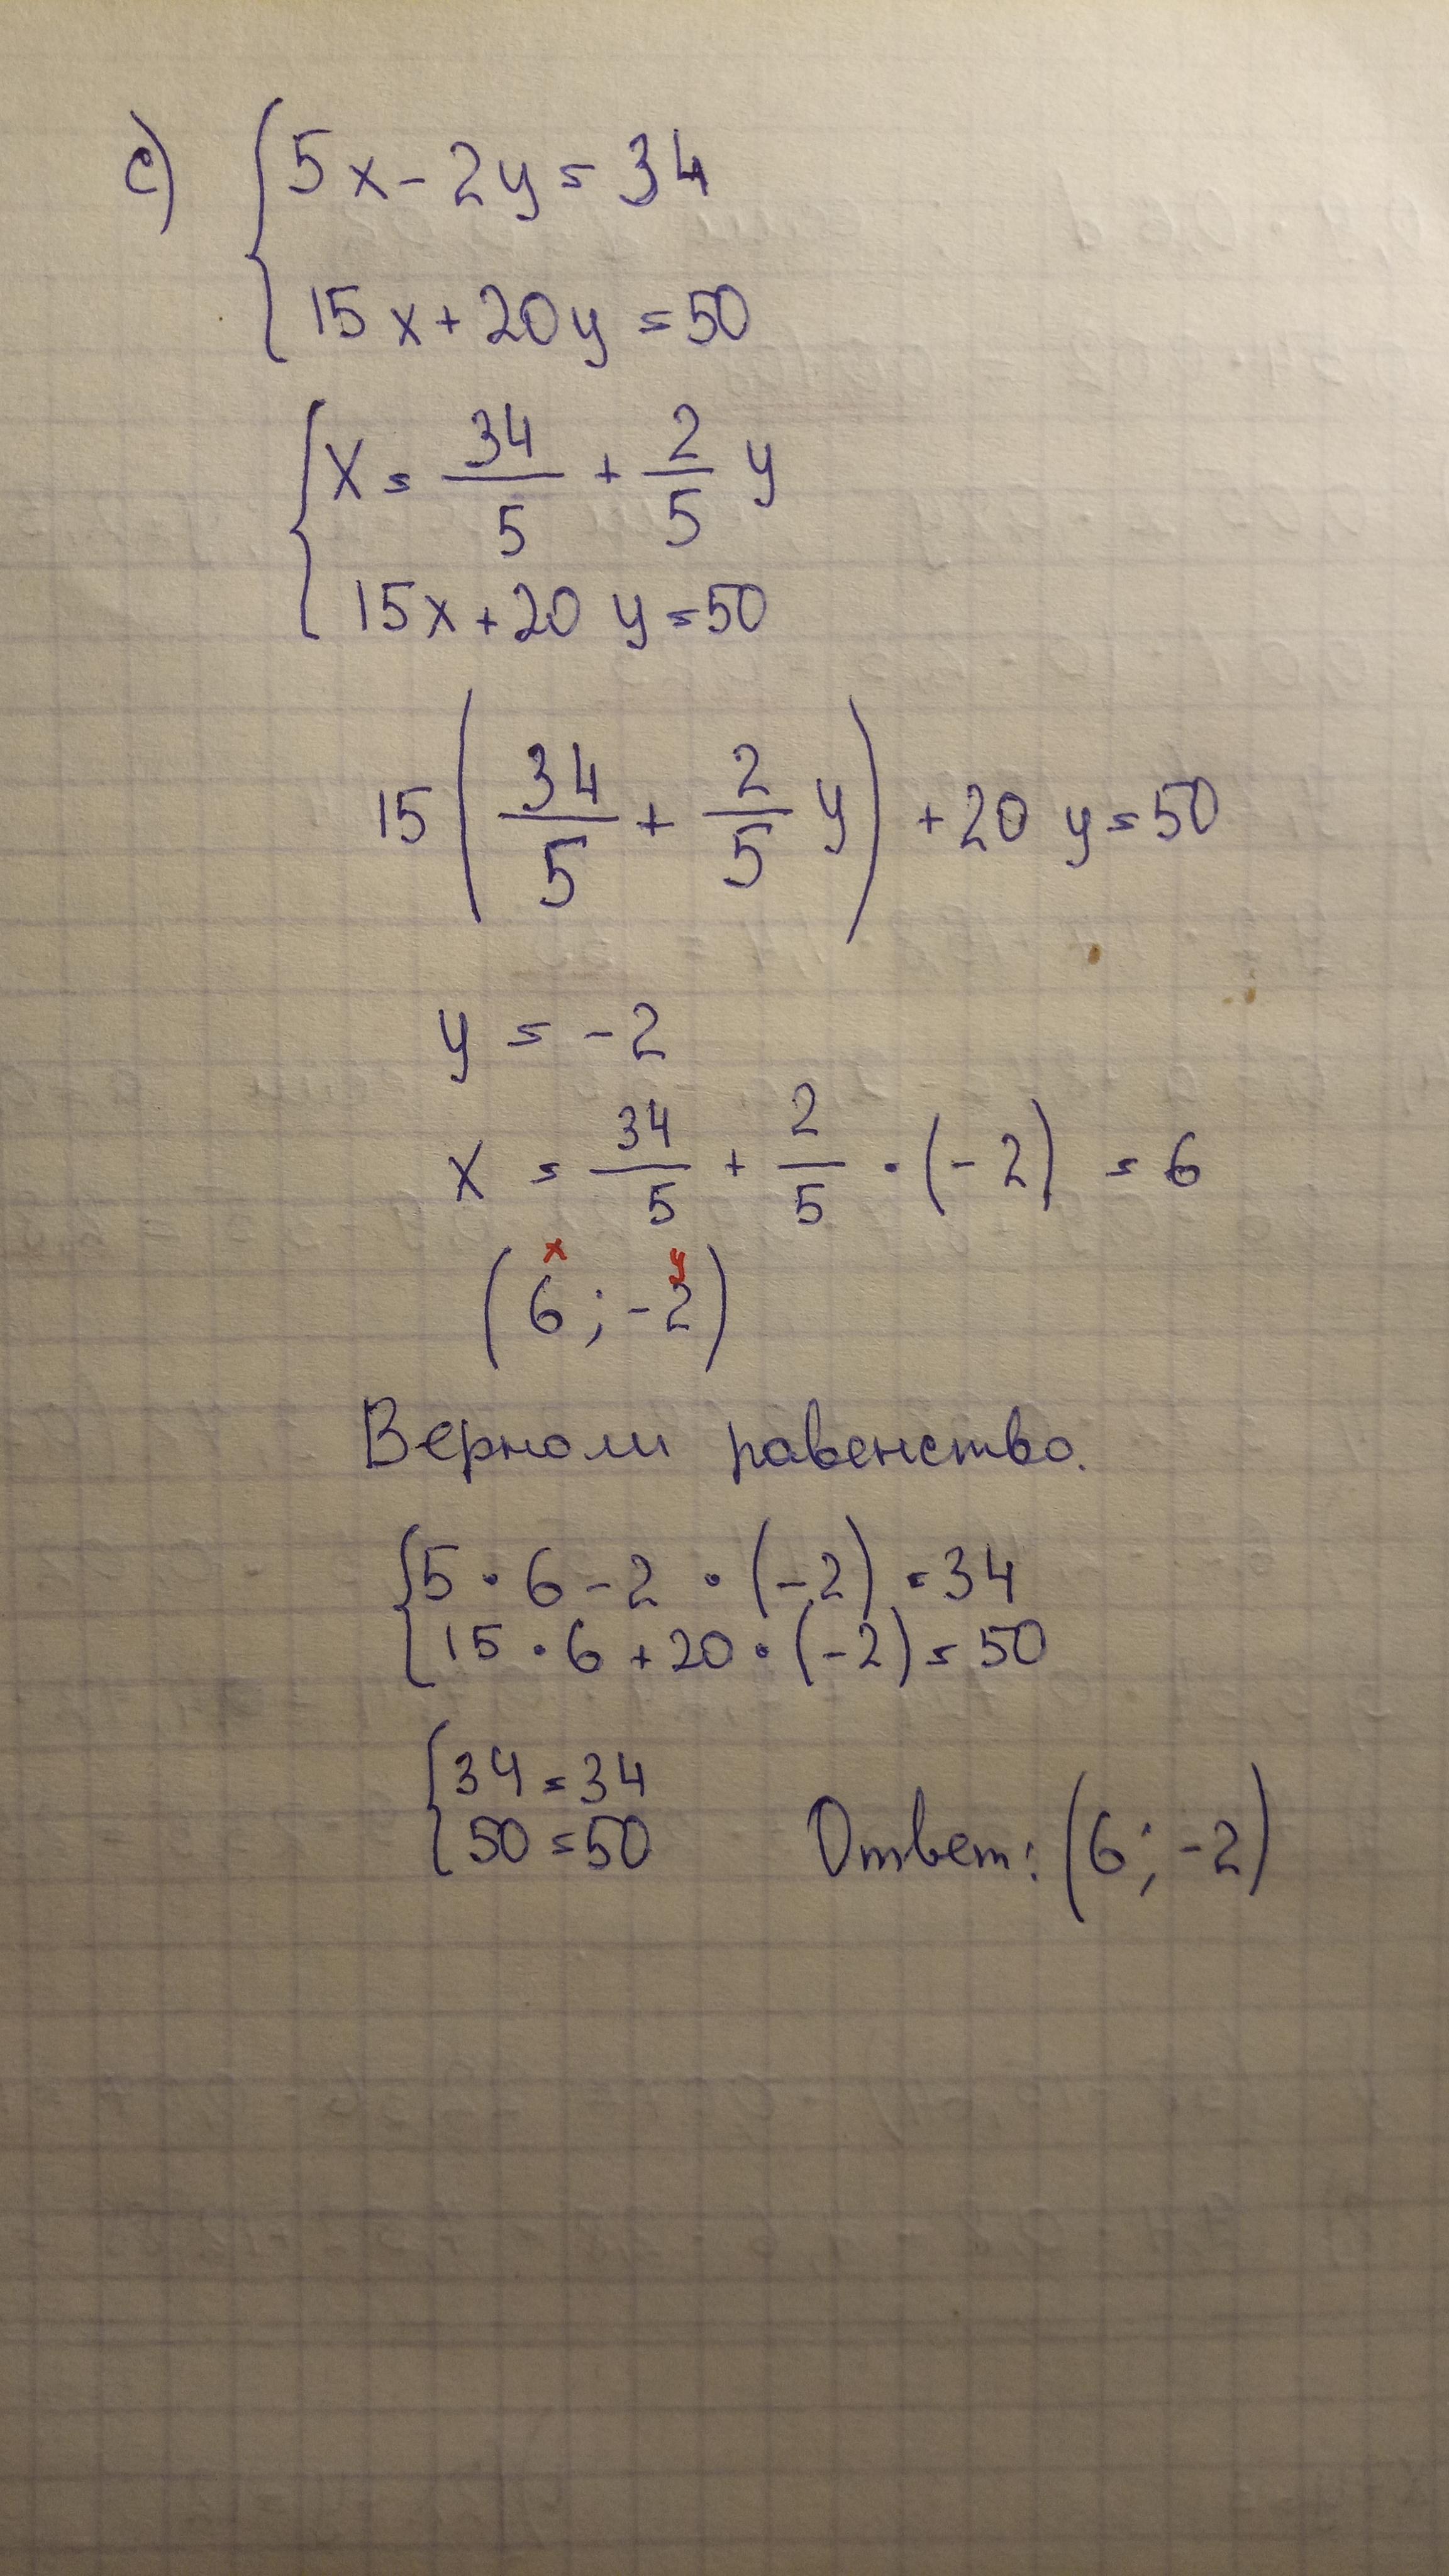 c) { 5x - 2y = 34
15x + 20y = 50
{ x = 34/5 + 2/5 y
15x + 20y = 50
15 ( 34/5 + 2/5 y ) + 20 y = 50
y = -2
x = 34/5 + 2/5 · (-2) = 6
x y
(6 ; -2)
Верно ли равенство.
{ 5 · 6 - 2 · (-2) = 34
15 · 6 + 20 · (-2) = 50
{ 34 = 34
50 = 50 Ответ: (6 ; -2)